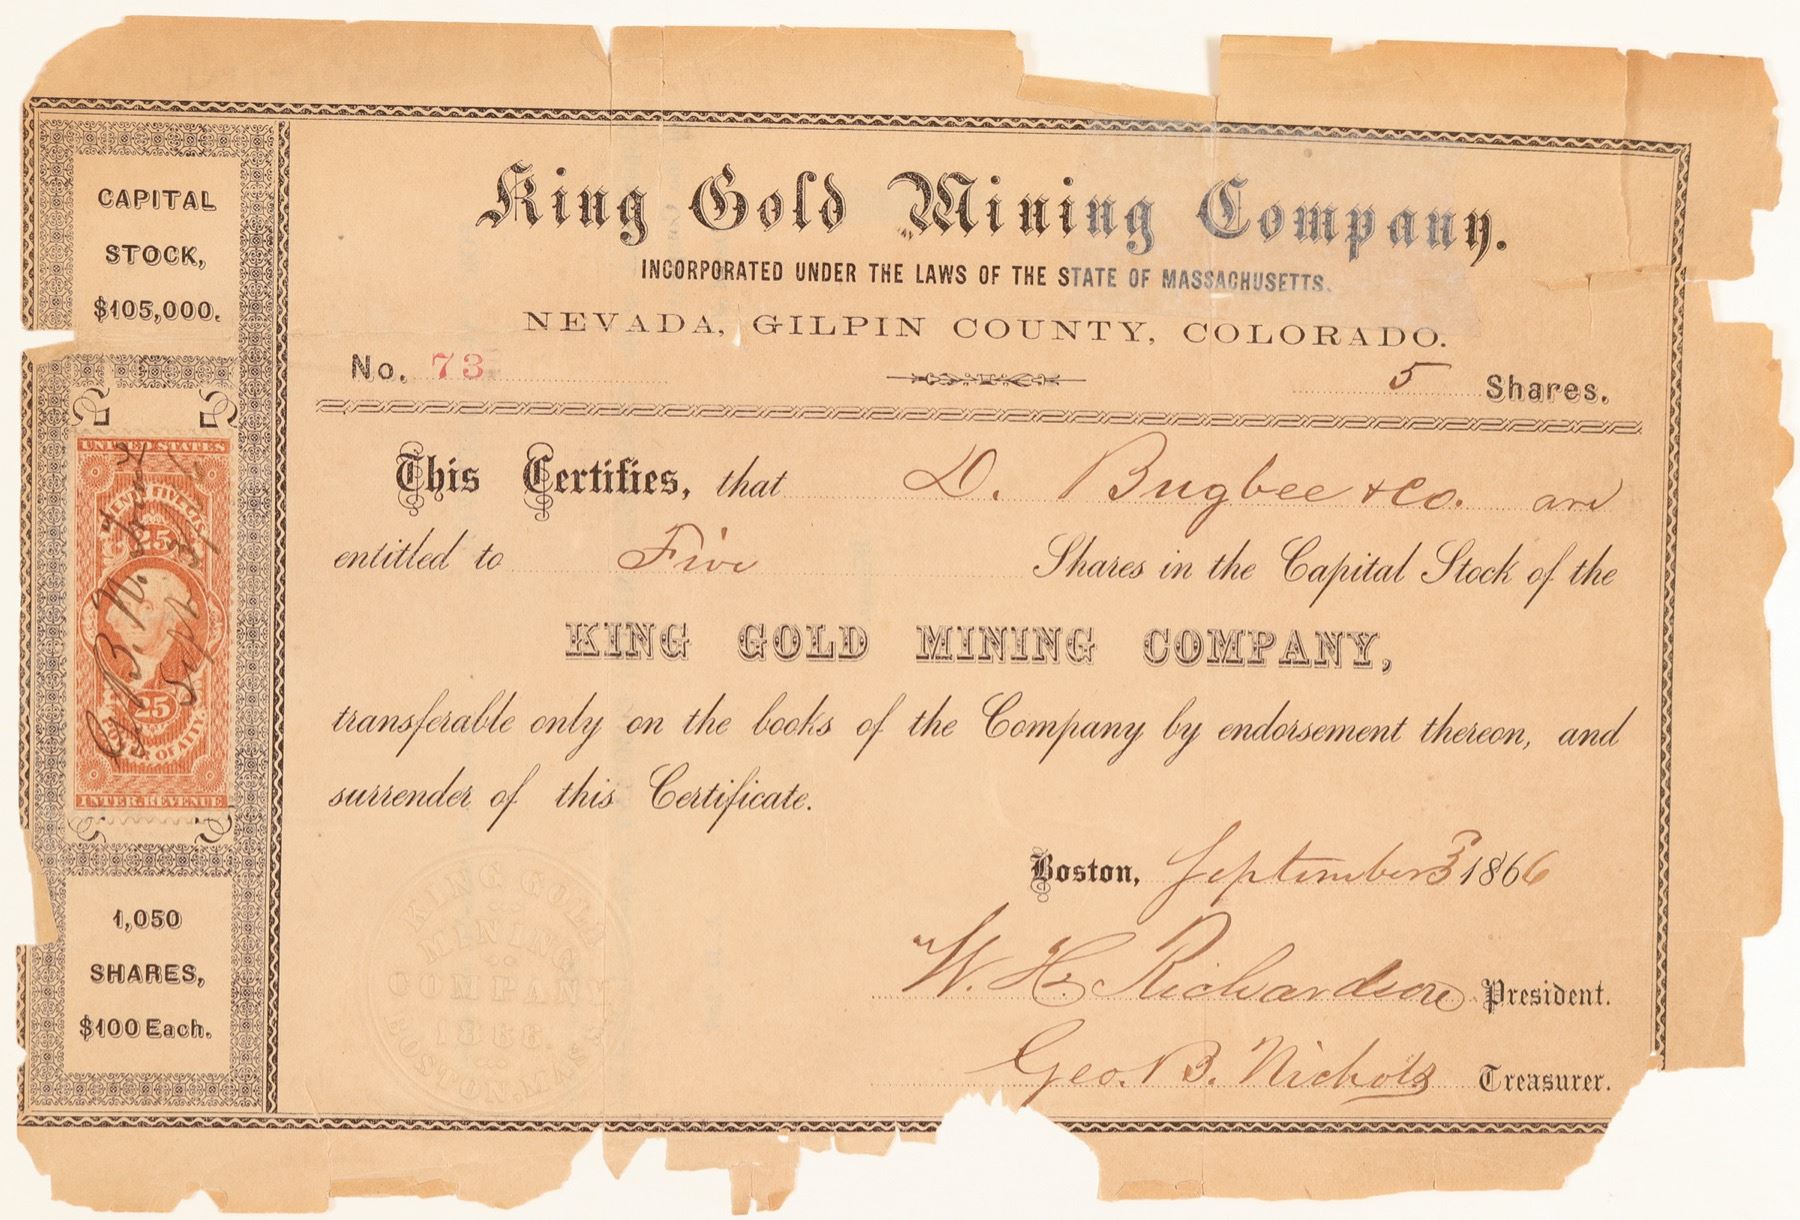 CAPITAL
STOCK,
$105,000.
UNITED STATES
TWENTY FIVE CENTS
25
25
POWER OF ATT'Y
INTER. REVENUE
G. B. N.
Sept 3
1,050
SHARES,
$100 Each.
King Gold Mining Company.
INCORPORATED UNDER THE LAWS OF THE STATE OF MASSACHUSETTS.
NEVADA, GILPIN COUNTY, COLORADO.
No. 73
5 Shares.
This Certifies, that D. Bugbee & Co. are
entitled to Five Shares in the Capital Stock of the
KING GOLD MINING COMPANY,
transferable only on the books of the Company by endorsement thereon, and
surrender of this Certificate.
Boston, September 3 1866
W. H. Richardson President.
Geo. B. Nichols Treasurer.
KING GOLD
MINING
COMPANY
1866.
BOSTON MASS